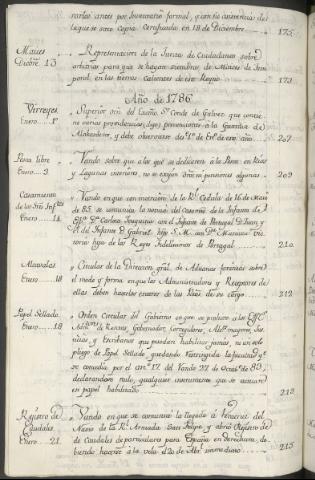 varlos antes por Imbentario formal, y con su consecuencia de
lo que se saco Copia Certificada en 18 de Diciembre 175
Maices
Diciēre 13 Representacion de la Junta de Ciudadanos sobre
arbitrios para que se hagan siembras de Maices de Tem-
poral, en las tierras calientes de este Reyno 178
Año de 1786
Virreyes.
Enero 1º Superior orñ del Exmõ. Sr. Conde de Galvez que contie-
ne varias providencias, digo, prevenciones a la Guardia de
Alabarderos, y debe observarse dsde 1º de Enº de este año 207
Pesca libre
Enero 3 Vando sobre que a los que se dedicaren a la Pesca en Rios
y Lagunas interiores no se exijan Año ni pensiones algunas 209
Casamientos
de los Srs Inftes
Enero 14 Vando en que con insercion de la Rl. Cedula de 16 de Maio
de 85 se comunica la noticia del Casamto de la Infanta de
Espª Dª Carlota Joaquina con el Infante de Portugal D. Juan, y
el del Infante D. Gabriel hijo S. M. con Dª Mariana Vic-
toria hija de los Reyes Fidelisimos de Portugal 210
Alcavalas
Enero 18 Circular de la Direccion gral. de Aduanas foraneas sobre
el modo y forma en que los Administradores y Receptores de
ellas deben hacerlas enteros de las Rias de su cargo 212
Papel Sellado
Enero 18 Orden Circular del Gobierno en que se previene a los Sres
Admres. de Rentas, Gobernador, Corregidores, Alces mayores, Jus-
ticias y Escribanos que puedan habilitar jamas ni un solo
pliego de Papel Sellado, quedando restringida la facultad qe.
se concedia por el arto. 17 del Vando 27 de Octre. de 83,
declarandose nulo, qualquier instrumento que se actuare
en papel habilitado 213
Registro de
Caudales
Enero 21 Vando en que se comunica la llegada a Veracruz del
Navio de la Rl. Armada San Felipe y abrio Registro de
de Caudales de particulares para España en derechura, de-
biendo hacerse a la vela d 20 de Abl. inmediato 215